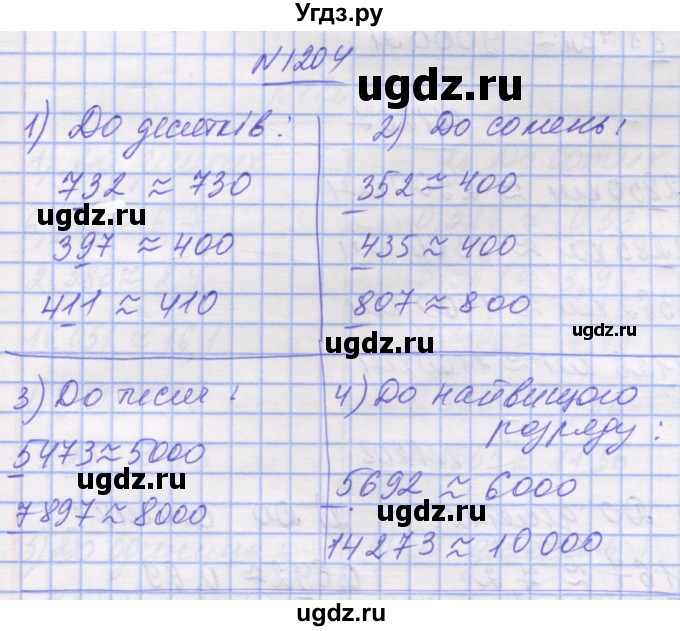 Угдз.ру
N 1204
ugdz.ru
1) До десятків:
732 ≈ 730
ugdz.ru
397 ≈ 400
411 ≈ 410
2) До сотень:
352 ≈ 400
ugdz.ru
435 ≈ 400
807 ≈ 800
ugdz.ru
ugdz.ru
3) До тисяч:
5473 ≈ 5000
ugdz.ru
7897 ≈ 8000
4) До найвищого
розряду:
5692 ≈ 6000
ugdz.ru
14273 ≈ 10000
ugdz.ru